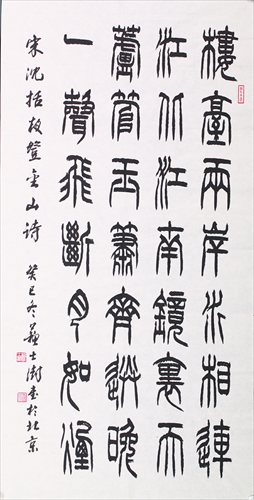 樓臺兩岸水相連
江北江南鏡裏天
蘆管玉簫齊送晚
一聲飛斷月如煙
宋沈括夜登金山诗 癸巳冬蘇士澍書於北京